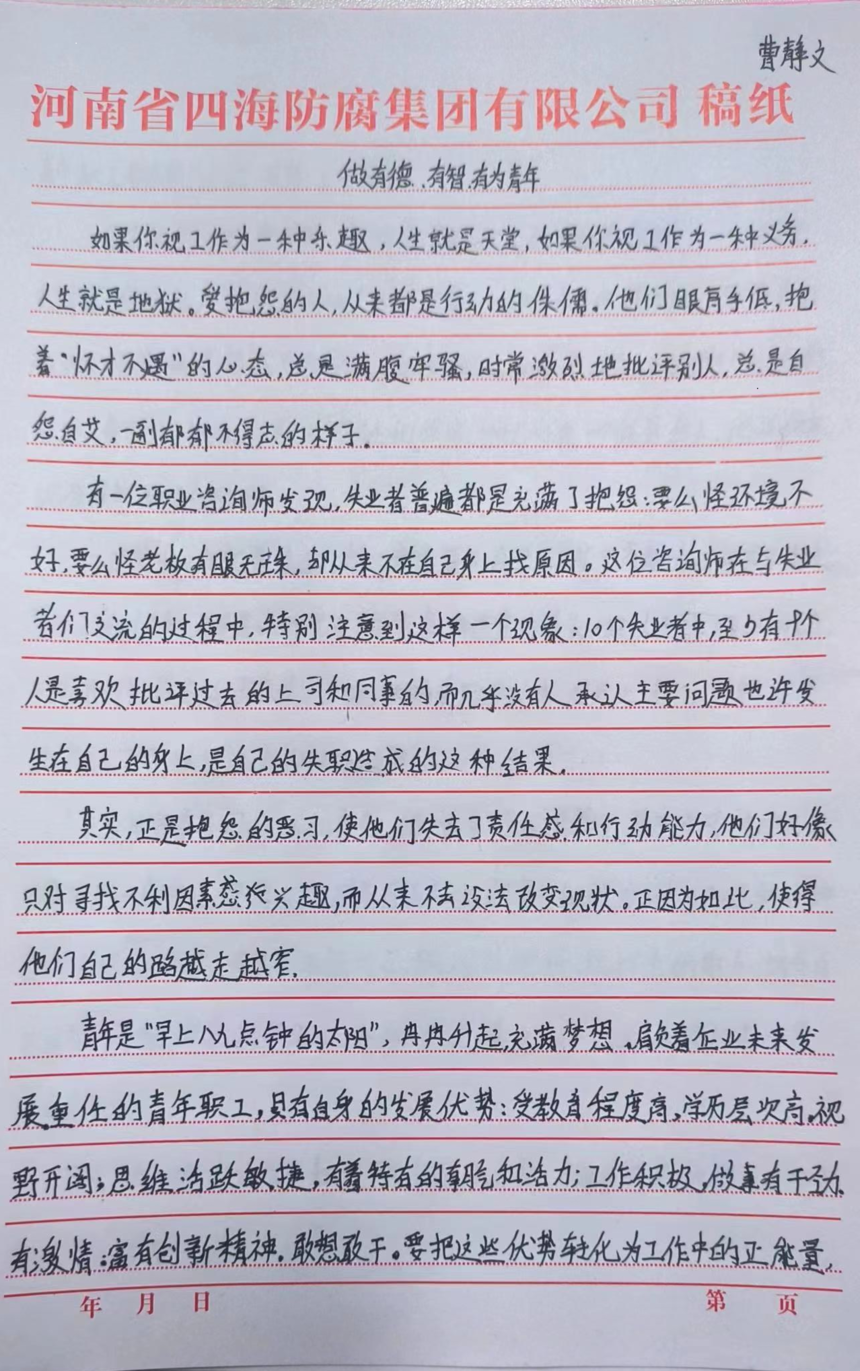 曹静文
河南省四海防腐集团有限公司 稿纸
做有德、有智、有为青年
如果你视工作为一种乐趣，人生就是天堂，如果你视工作为一种义务，
人生就是地狱。爱抱怨的人，从来都是行动的侏儒。他们眼高手低，抱
着“怀才不遇”的心态，总是满腹牢骚，时常激烈地批评别人，总是自
怨自艾，一副郁郁不得志的样子。
有一位职业咨询师发现，失业者普遍都是充满了抱怨：要么怪环境不
好，要么怪老板有眼无珠，却从来不在自己身上找原因。这位咨询师在与失业
者们交流的过程中，特别注意到这样一个现象：10个失业者中，至少有9个
人是喜欢批评过去的上司和同事的，而几乎没有人承认主要问题也许发
生在自己的身上，是自己的失职造成的这种结果。
其实，正是抱怨的恶习，使他们失去了责任感和行动能力，他们好像
只对寻找不利因素感兴趣，而从来不去设法改变现状。正因为如此，使得
他们自己的路越走越窄。
青年是“早上八九点钟的太阳”，冉冉升起，充满梦想。肩负着企业未来发
展重任的青年职工，具有自身的发展优势：受教育程度高，学历层次高，视
野开阔；思维活跃敏捷，有着特有的朝气和活力；工作积极，做事有干劲、
有激情；富有创新精神，敢想敢干。要把这些优势转化为工作中的正能量，
年 月 日
第 页